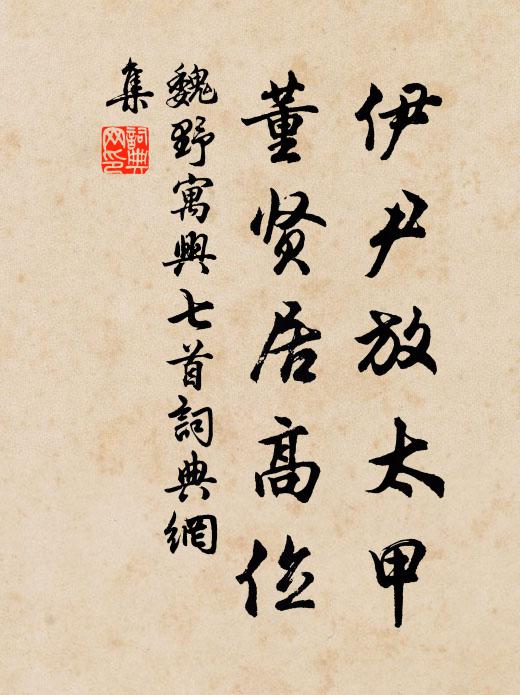 伊尹放太甲
董贤居高位
魏野寓興七首詞典網
集
詞典
网印